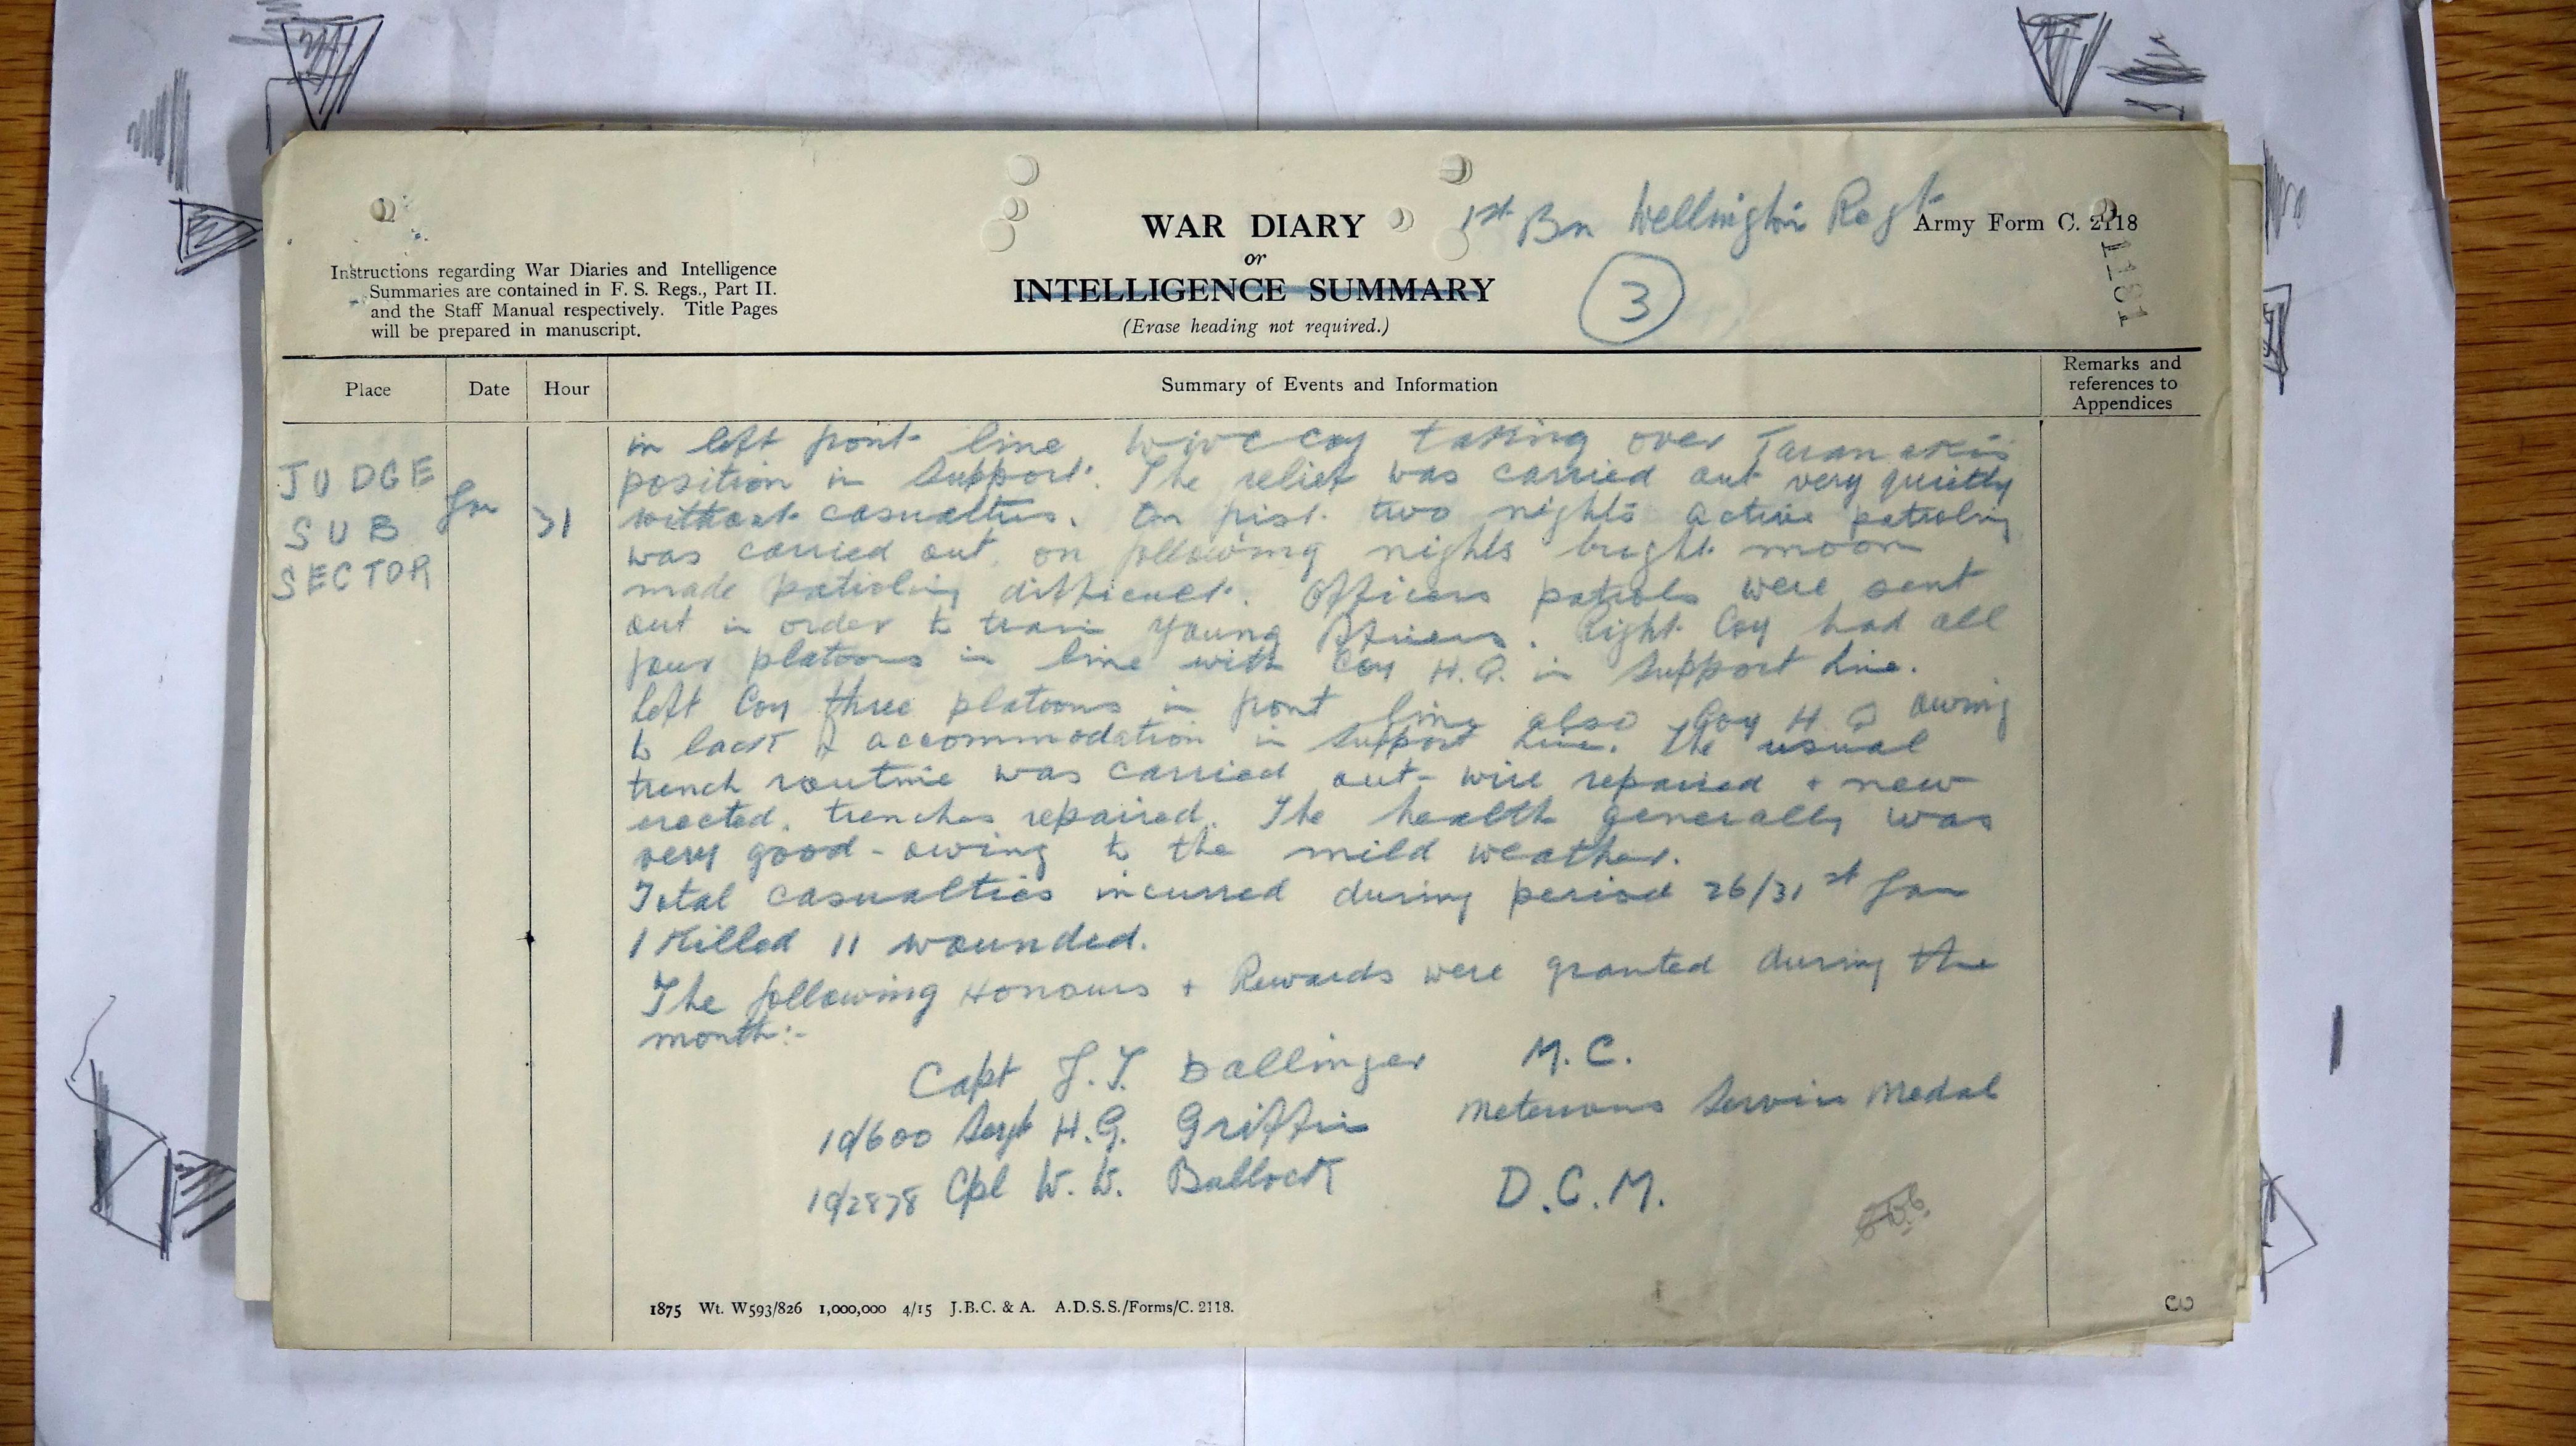 WAR DIARY
or
INTELLIGENCE SUMMARY
(Erase heading not required.)
1st Bn Wellington Regt
Army Form C. 2118
1181
3
Instructions regarding War Diaries and Intelligence
Summaries are contained in F. S. Regs., Part II.
and the Staff Manual respectively. Title Pages
will be prepared in manuscript.
Place
Date
Hour
Summary of Events and Information
Remarks and
references to
Appendices
JUDGE
SUB
SECTOR
Jan
31
in left front line W.W.C coy taking over Taranakis
position in support. The relief was carried out very quietly
without casualties. On first two nights active patroling
was carried out, on following nights bright moon
made patroling difficult. Officers patrols were sent
out in order to train young officers. Right Coy had all
four platoons in line with Coy H.Q. in Support Line.
Left Coy three platoons in front line also Coy H.Q owing
to lack of accommodation in Support Line. The usual
trench routine was carried out - wire repaired + new
erected, trenches repaired. The health generally was
very good - owing to the mild weather.
Total casualties incurred during period 26/31st Jan
1 Killed 11 wounded.
The following Honours + Rewards were granted during the
month:-
Capt J.T. Dallinger M.C.
10/600 Sergt H.G. Griffin Meterious Service Medal
10/2878 Cpl W.W. Bullock D.C.M.
1875 Wt. W593/826 1,000,000 4/15 J.B.C. & A. A.D.S.S./Forms/C. 2118.